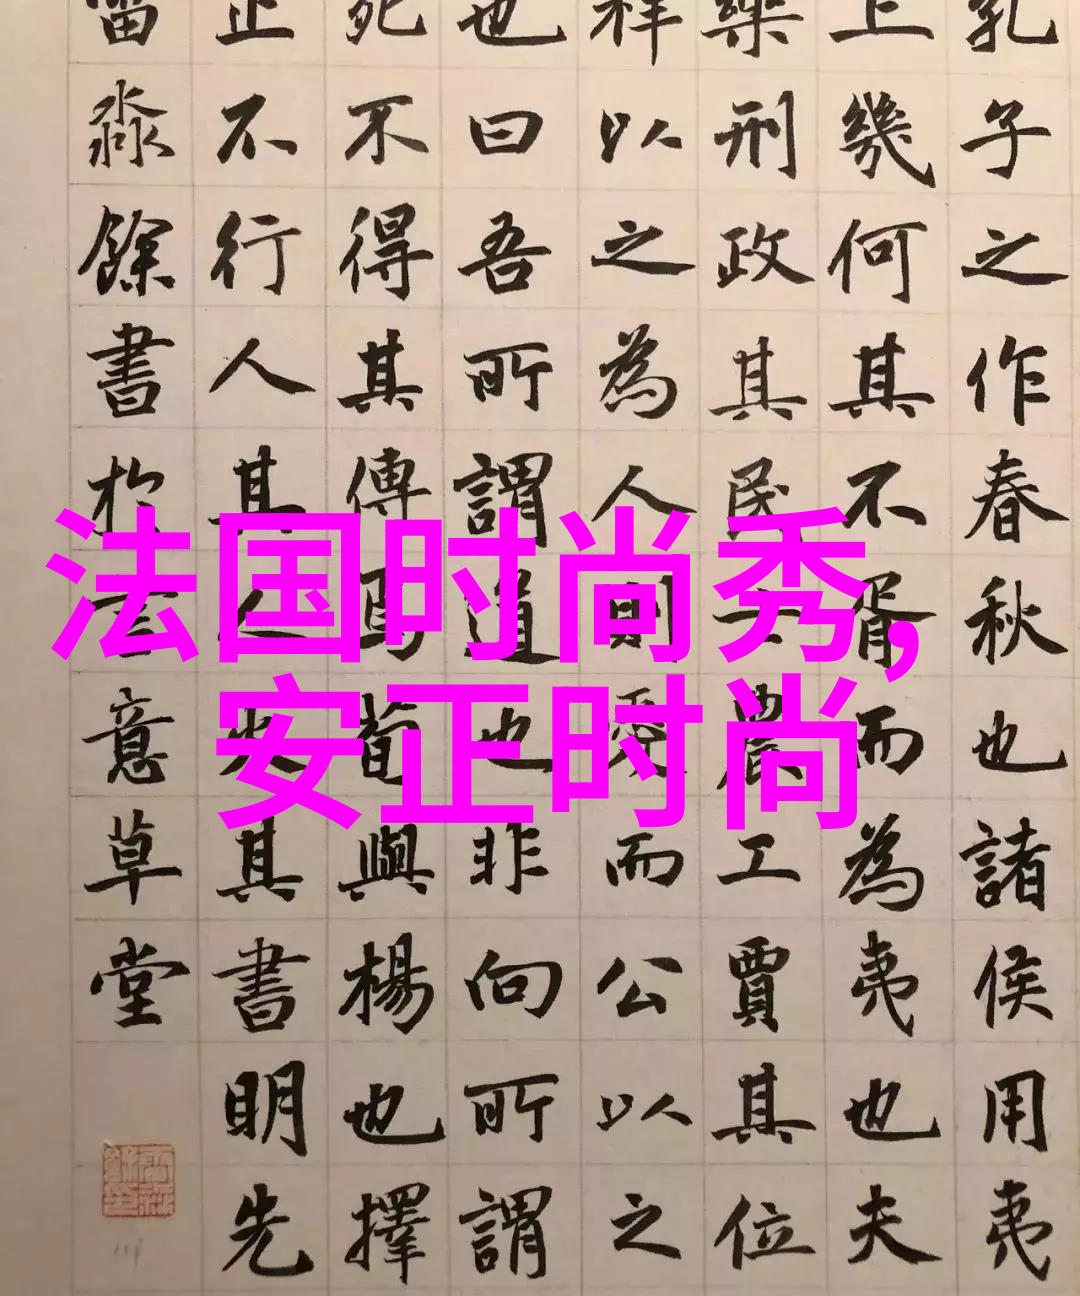 法国时尚秀,
安正时尚
孔子之作春秋也諸侯用夷
上幾何其不胥而為夷也夫
樂刑政其民士農工賈其位
祥以之為人則愛而公以之
也曰吾所謂道也非向所謂
死不得其傳焉荀與楊也擇
正不行人其人火其書明先
淼餘書於意草堂